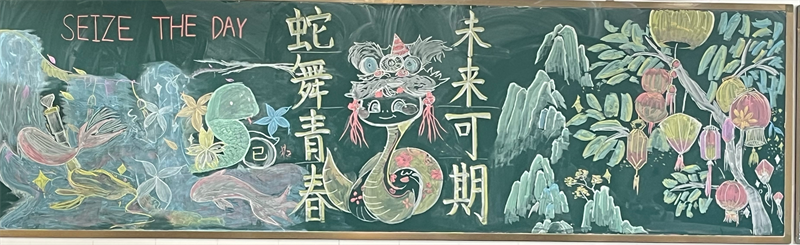 SEIZE THE DAY
蛇舞青春
未来可期
巳